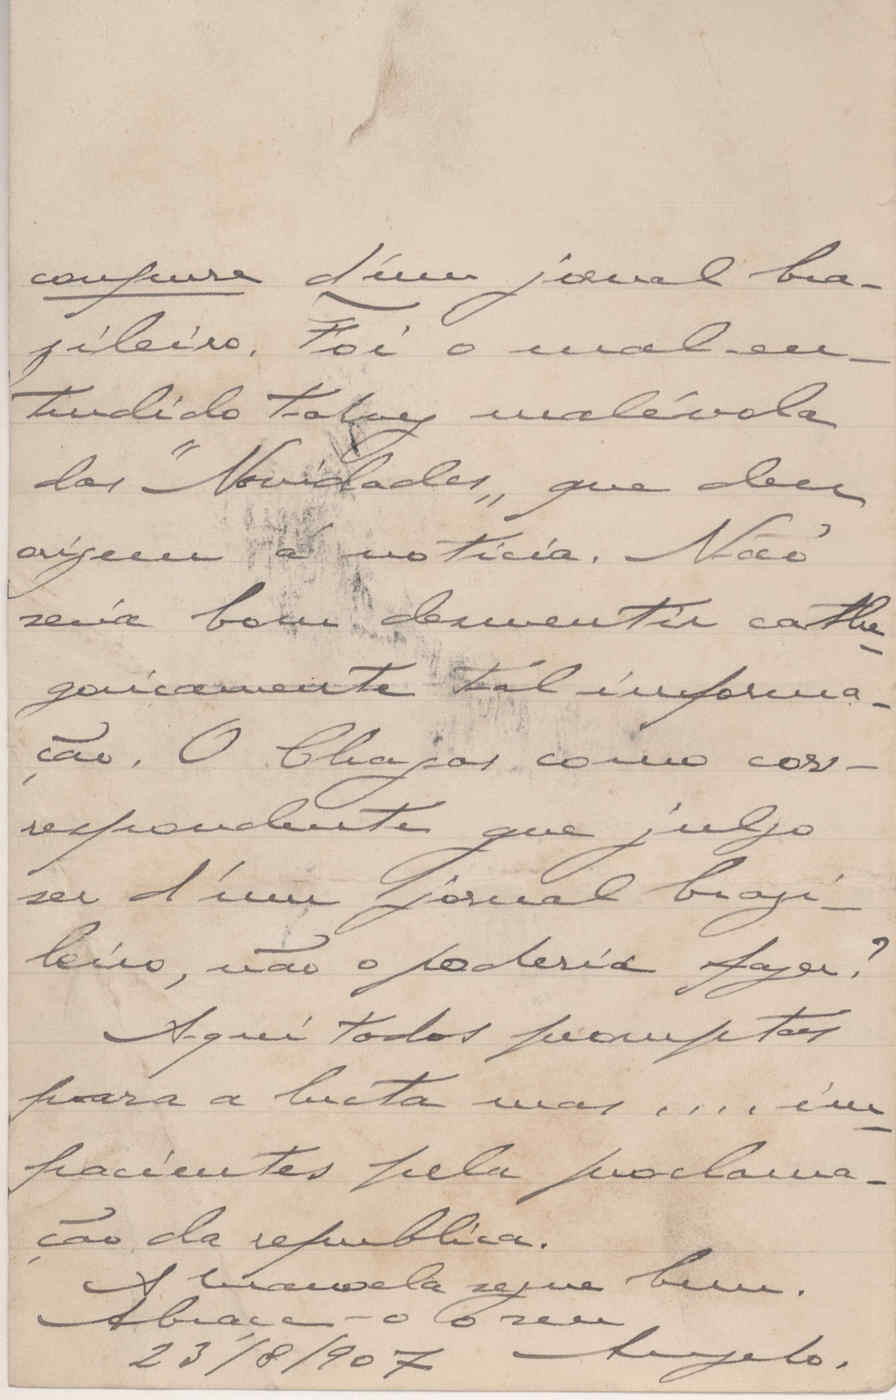 conjura d'um jornal bra-
zileiro. Foi o mal-en-
tendido talvez malévola
das "Novidades„ que deu
origem á noticia. Não
seria bom desmentir cathe-
goricamente tál informa-
ção. O Chagas como cor-
respondente que julgo
ser d'um jornal brazi-
leiro, não o poderia fazer?
Aqui todos promptos
para a lucta mas .... im-
pacientes pela proclama-
ção da republica.
A Manoela segue bem.
Abraça-o o seu
23/8/907 Angelo.